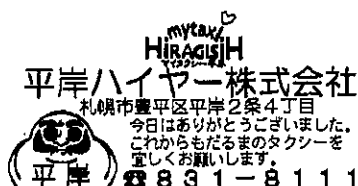 mytaxi
HiRAGiSiH
平岸ハイヤー株式会社
札幌市豊平区平岸2条4丁目
今日はありがとうございました。
これからもだるまのタクシーを
宜しくお願いします。
平岸
☎831-8111